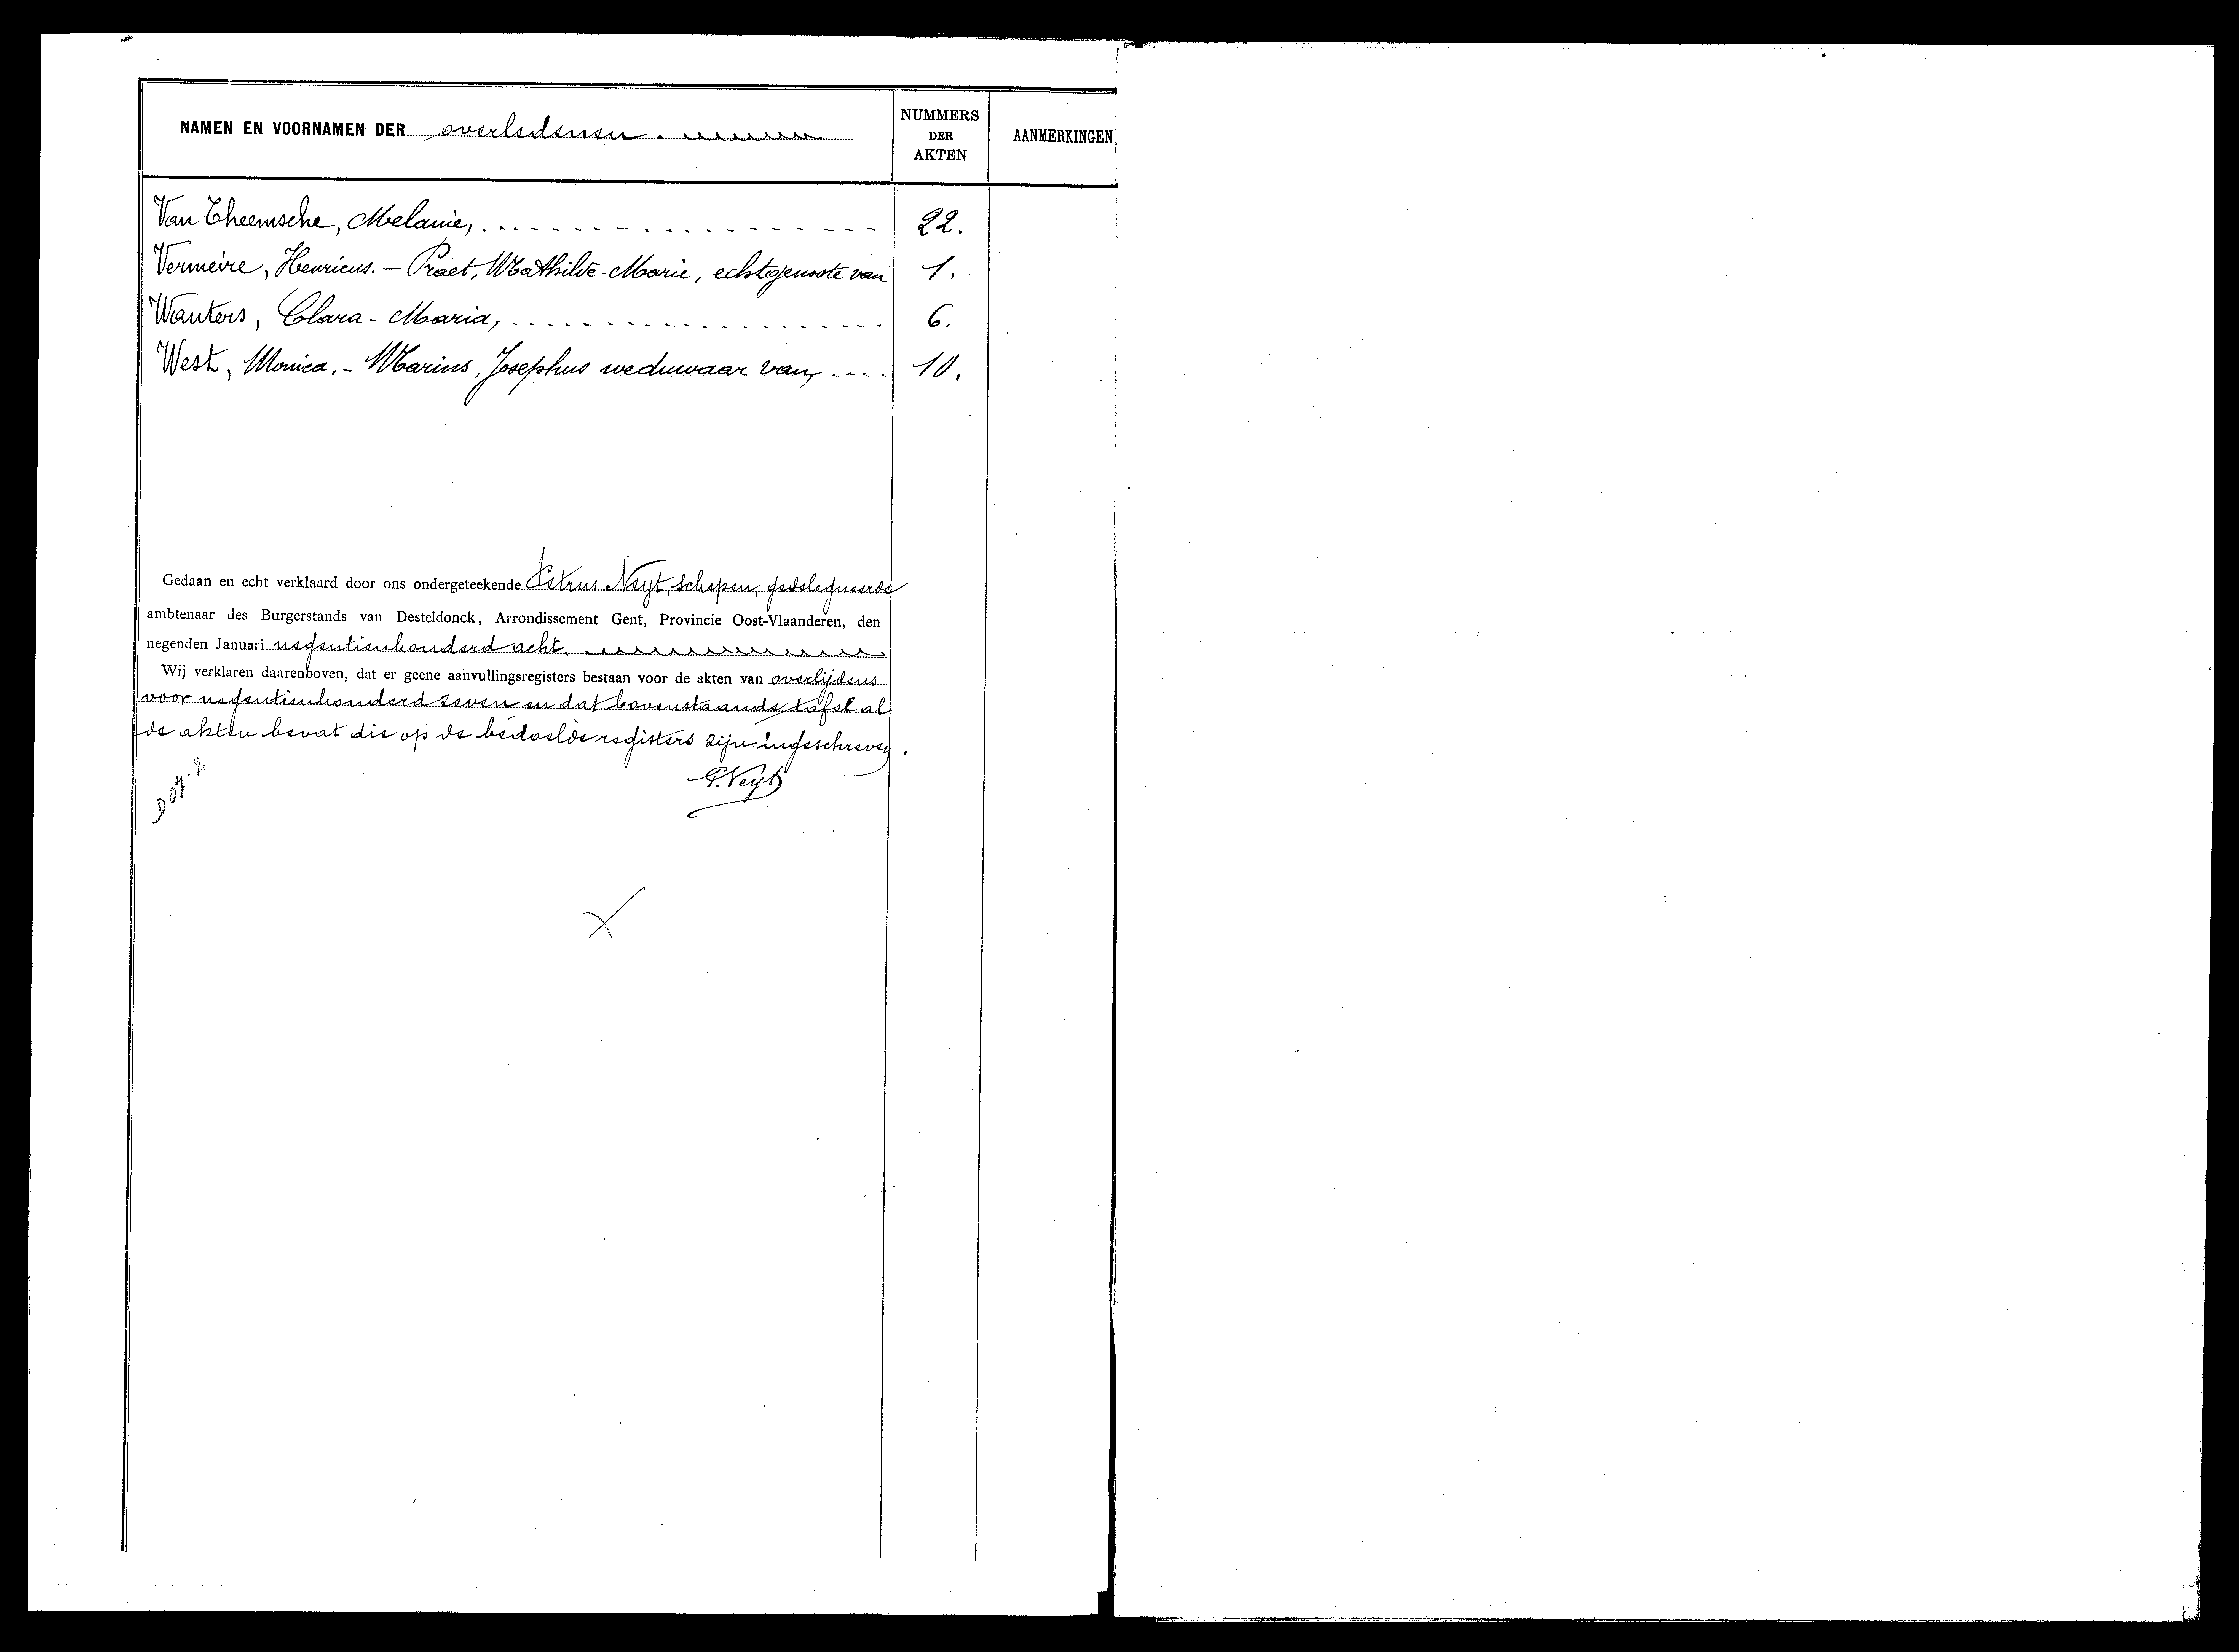 NAMEN EN VOORNAMEN DER overledenen.
NUMMERS DER AKTEN
AANMERKINGEN
Van Theemsche, Melanie, 22.
Vermeire, Henricus. – Praet, Mathilde-Marie, echtgenoote van 1.
Wauters, Clara-Maria, 6.
West, Monica. – Marius, Josephus weduwaar van, 10.
Gedaan en echt verklaard door ons ondergeteekende Petrus Neyt, schepen, gedelegueerde
ambtenaar des Burgerstands van Desteldonck, Arrondissement Gent, Provincie Oost-Vlaanderen, den
negenden Januari negentienhonderd acht.
Wij verklaren daarenboven, dat er geene aanvullingsregisters bestaan voor de akten van overlijdens
voor negentienhonderd zeven en dat bovenstaande tafel al
de akten bevat die op de bedoelde registers zijn ingeschreven.
P. Neyt